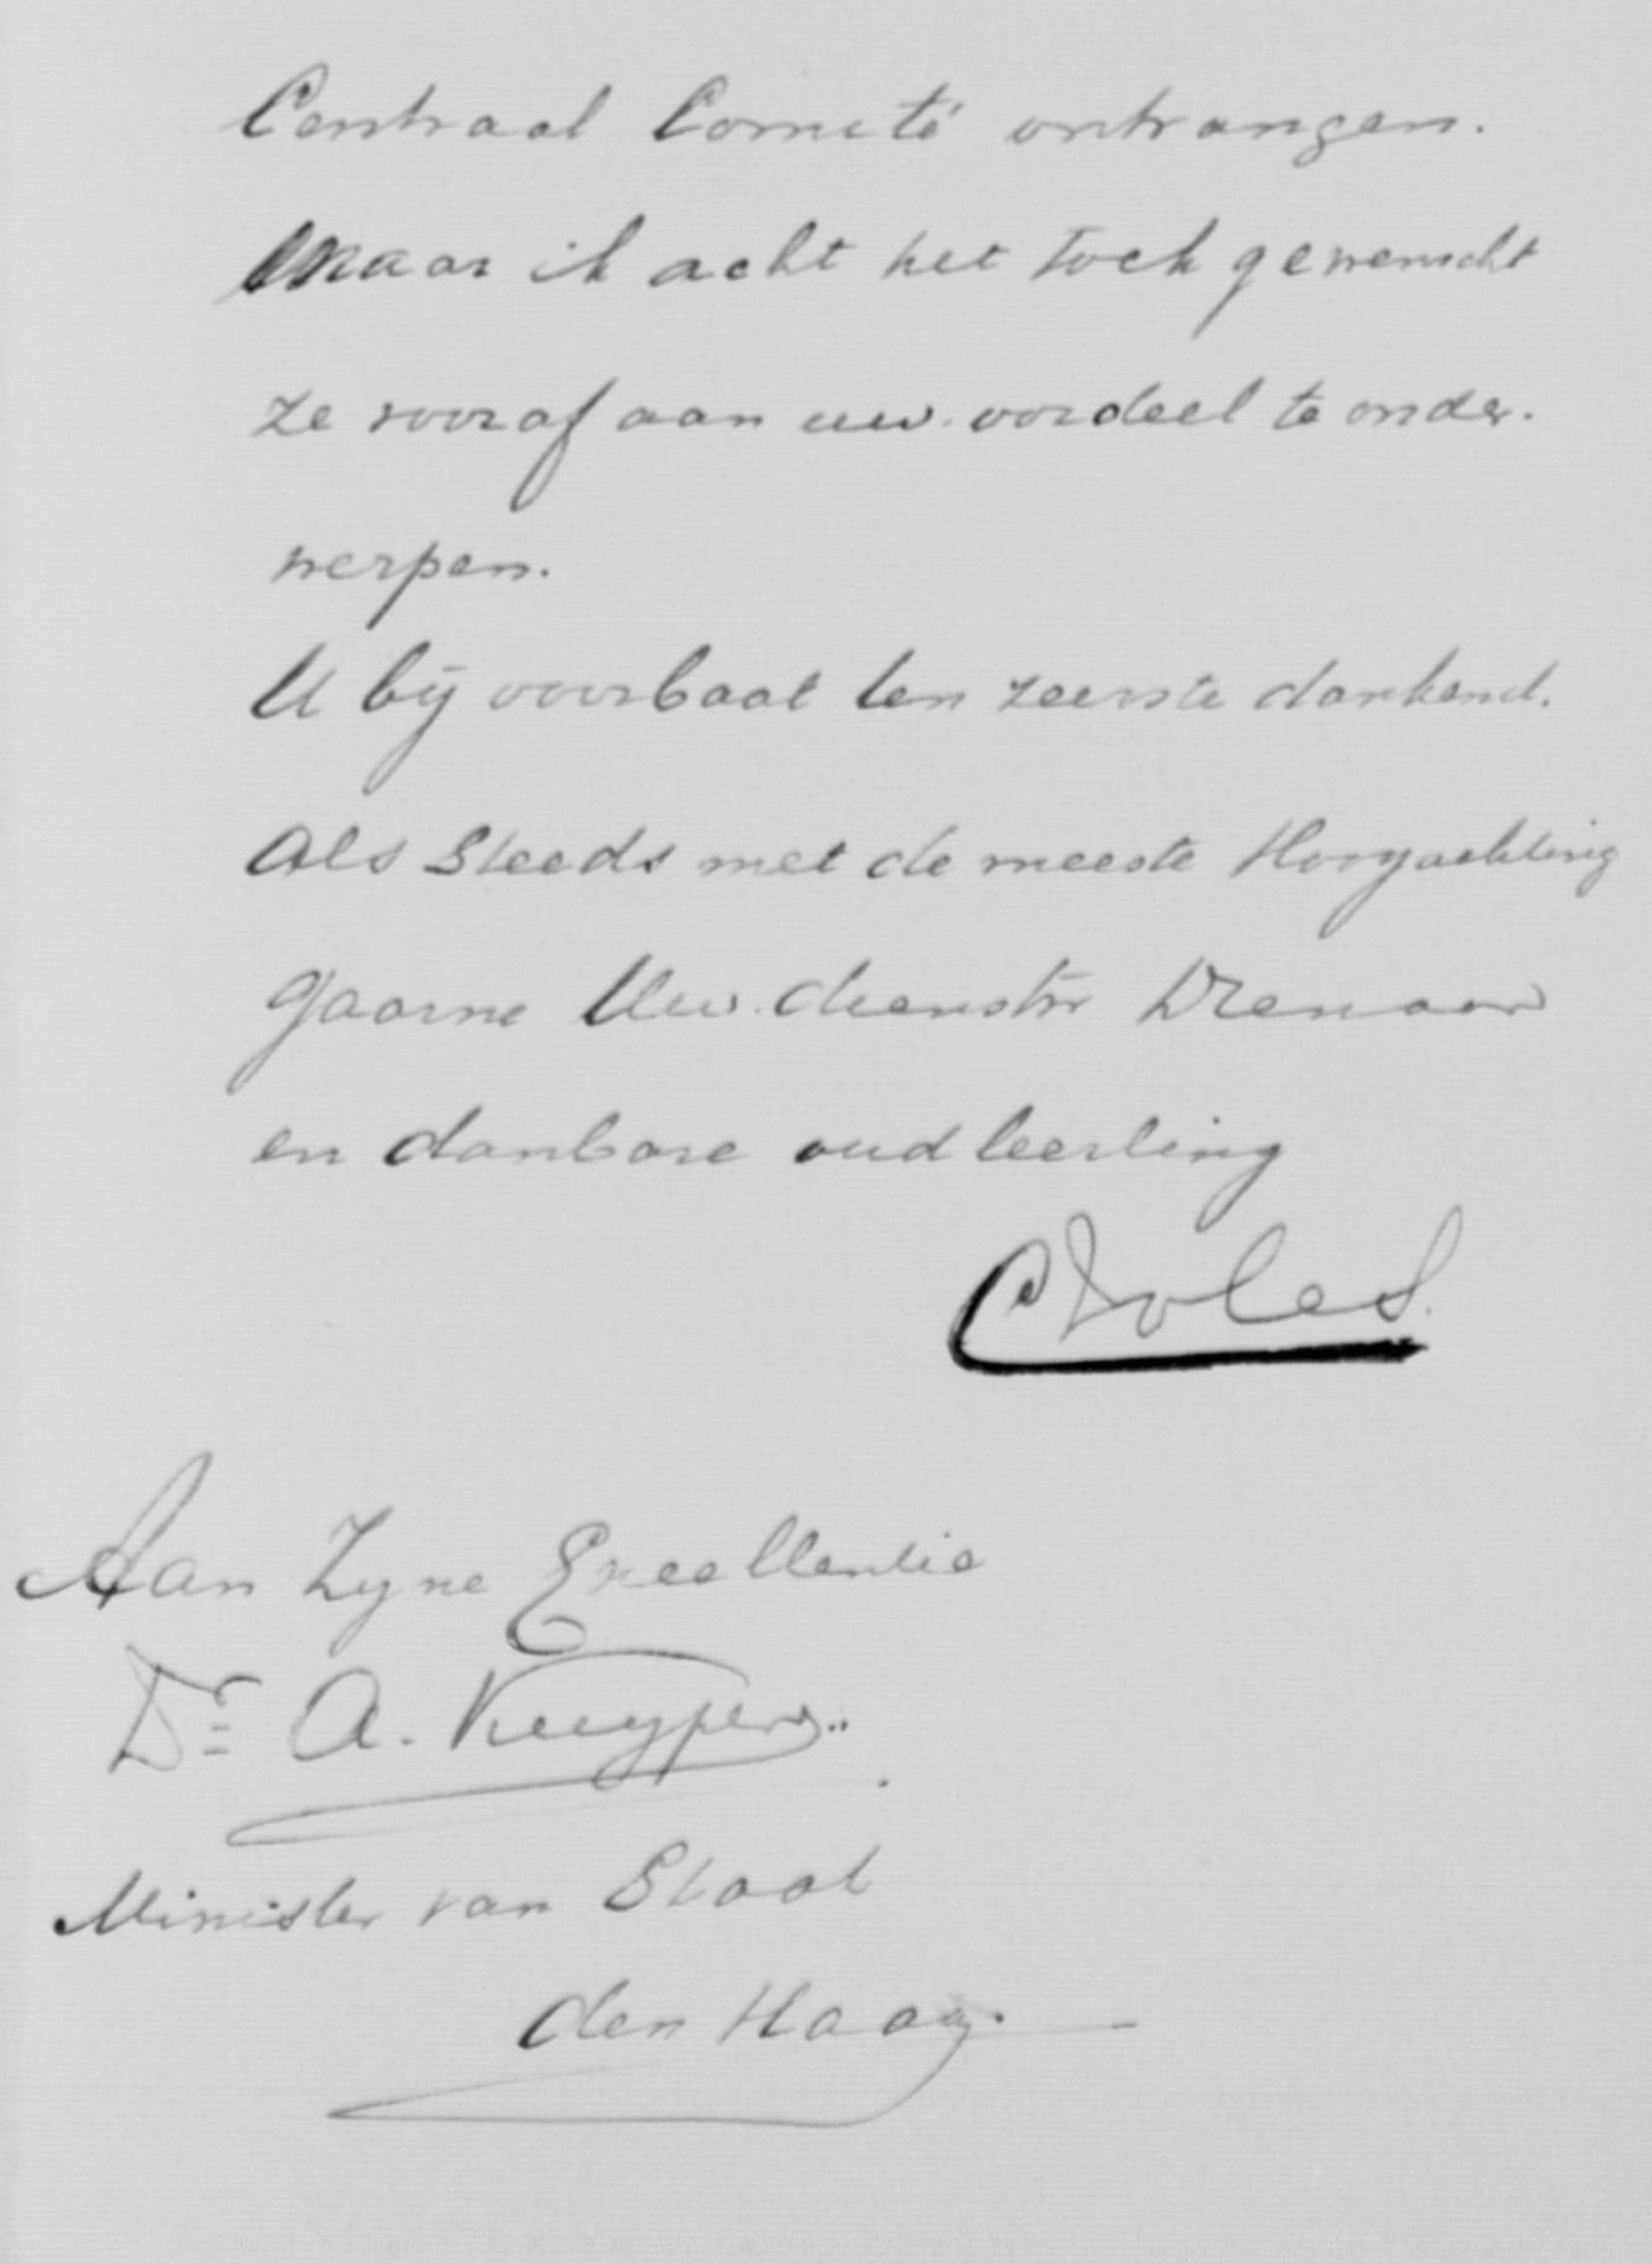 Centraal Comité ontvangen.
Maar ik acht het toch gewenscht
ze vooraf aan uw. oordeel te onder-
werpen.
U bij voorbaat ten zeerste dankend.
Als steeds met de meeste Hoogachting
gaarne Uw. dienstw Dienaar
en dankbare oud leerling
Aan Zyne Excellentie
Dr. A. Kuyper
Minister van Staat
den Haag.